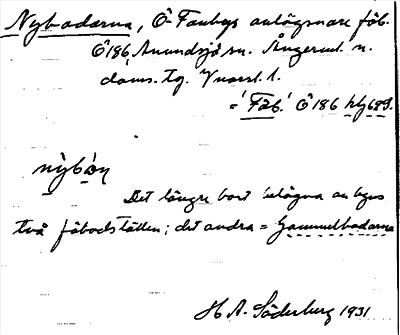 Nybodarna, Ö Fanbyns avlägsnare fäb.
Ö 186, Anundsjö sn. Ångerml. n.
doms. tg. Y norrl. l.
= 'Fäb.' Ö 186
nỳbóɳ
Det längre bort belägna av byns
två fäbodställen; det andra = Gammelbodarna
H A. Söderberg 1931